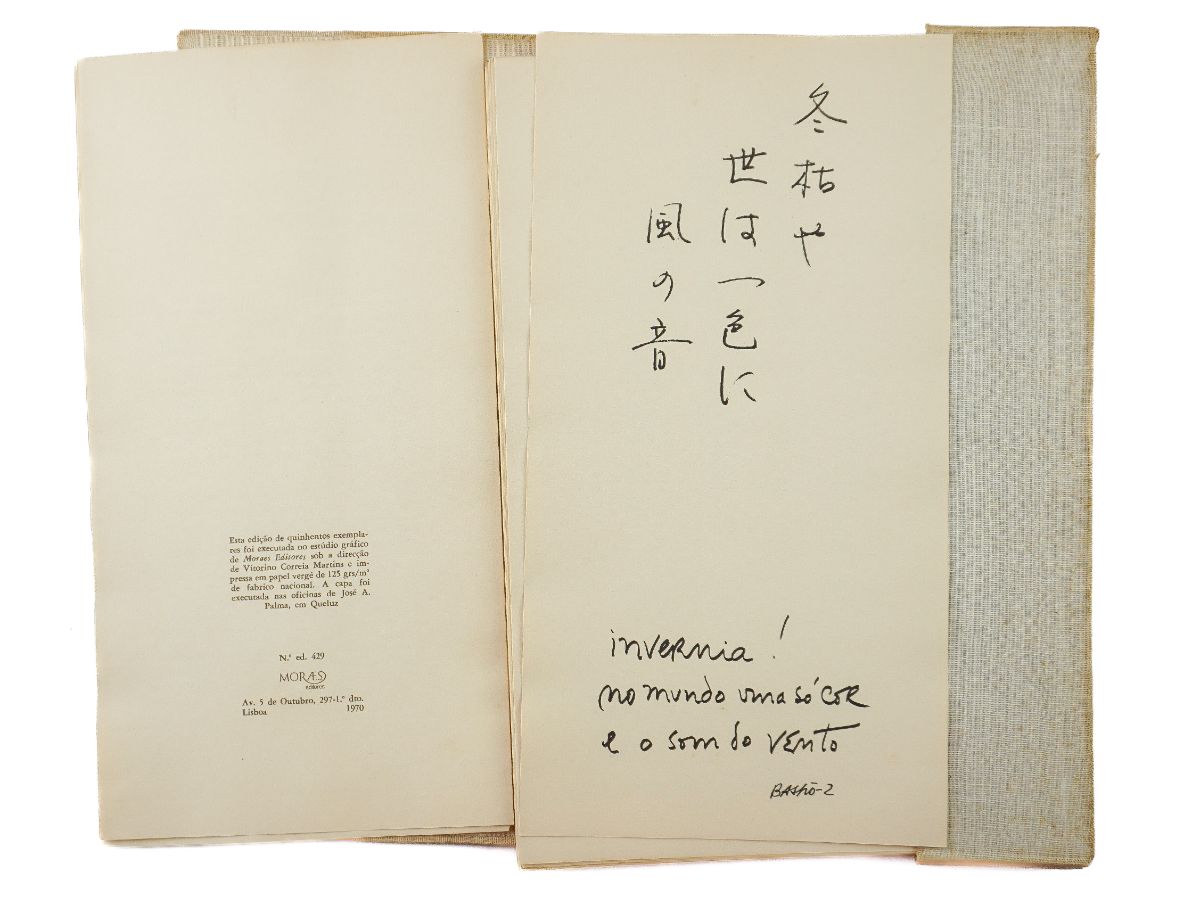 Esta edição de quinhentos exempla-
res foi executada no estúdio gráfico
de Moraes Editores sob a direcção
de Vitorino Correia Martins e im-
pressa em papel vergé de 125 grs/m²
de fabrico nacional. A capa foi
executada nas oficinas de José A.
Palma, em Queluz
N.º ed. 429
MORAES
editores
Av. 5 de Outubro, 297-1.º dto.
Lisboa 1970
冬枯や
世は一色に
風の音
invernia!
no mundo uma só cor
e o som do vento
BASHō-2